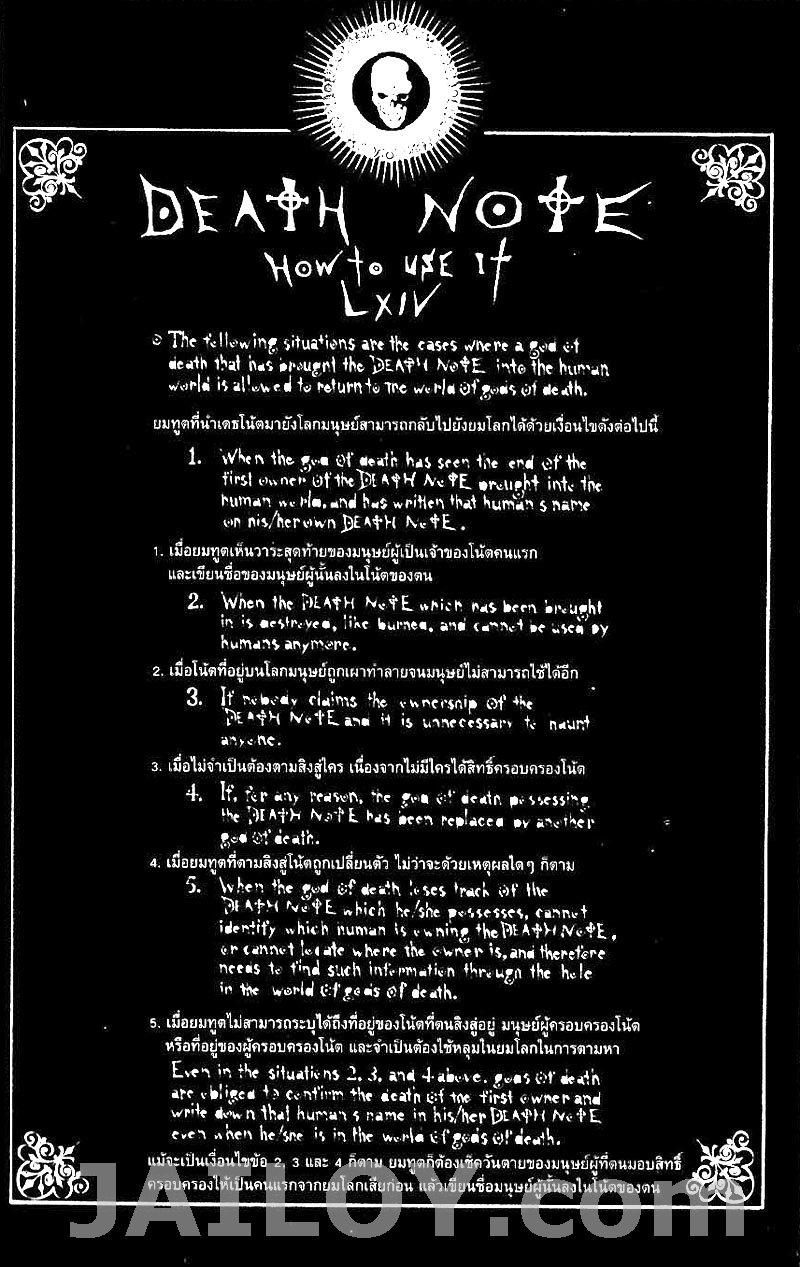 DEATH NOTE
HOW to USE It
LXIV
The following situations are the cases where a god of
death that has brought the DEATH NOTE into the human
world is allowed to return to the world of gods of death.
ยมทูตที่นำเดธโน้ตมายังโลกมนุษย์สามารถกลับไปยังยมโลกได้ด้วยเงื่อนไขดังต่อไปนี้
1. When the god of death has seen the end of the
first owner of the DEATH NOTE brought into the
human world, and has written that human's name
on his/her own DEATH NOTE.
1. เมื่อยมทูตเห็นวาระสุดท้ายของมนุษย์ผู้เป็นเจ้าของโน้ตคนแรก
และเขียนชื่อของมนุษย์ผู้นั้นลงในโน้ตของตน
2. When the DEATH NOTE which has been brought
in is destroyed, like burned, and cannot be used by
humans anymore.
2. เมื่อโน้ตที่อยู่บนโลกมนุษย์ถูกเผาทำลายจนมนุษย์ไม่สามารถใช้ได้อีก
3. If nobody claims the ownership of the
DEATH NOTE and it is unnecessary to haunt
anyone.
3. เมื่อไม่จำเป็นต้องตามสิงสู่ใคร เนื่องจากไม่มีใครได้สิทธิ์ครอบครองโน้ต
4. If, for any reason, the god of death possessing
the DEATH NOTE has been replaced by another
god of death.
4. เมื่อยมทูตที่ตามสิงสู่โน้ตถูกเปลี่ยนตัว ไม่ว่าจะด้วยเหตุผลใดๆ ก็ตาม
5. When the god of death loses track of the
DEATH NOTE which he/she possesses, cannot
identify which human is owning the DEATH NOTE,
or cannot locate where the owner is, and therefore
needs to find such information through the hole
in the world of gods of death.
5. เมื่อยมทูตไม่สามารถระบุได้ถึงที่อยู่ของโน้ตที่ตนสิงสู่อยู่ มนุษย์ผู้ครอบครองโน้ต
หรือที่อยู่ของผู้ครอบครองโน้ต และจำเป็นต้องใช้หลุมในยมโลกในการตามหา
Even in the situations 2, 3, and 4 above, gods of death
are obliged to confirm the death of the first owner and
write down that human's name in his/her DEATH NOTE
even when he/she is in the world of gods of death.
แม้จะเป็นเงื่อนไขข้อ 2, 3 และ 4 ก็ตาม ยมทูตก็ต้องเช็ควันตายของมนุษย์ผู้ที่ตนมอบสิทธิ์
ครอบครองให้เป็นคนแรกจากยมโลกเสียก่อน แล้วเขียนชื่อมนุษย์ผู้นั้นลงในโน้ตของตน
JAILOY.com